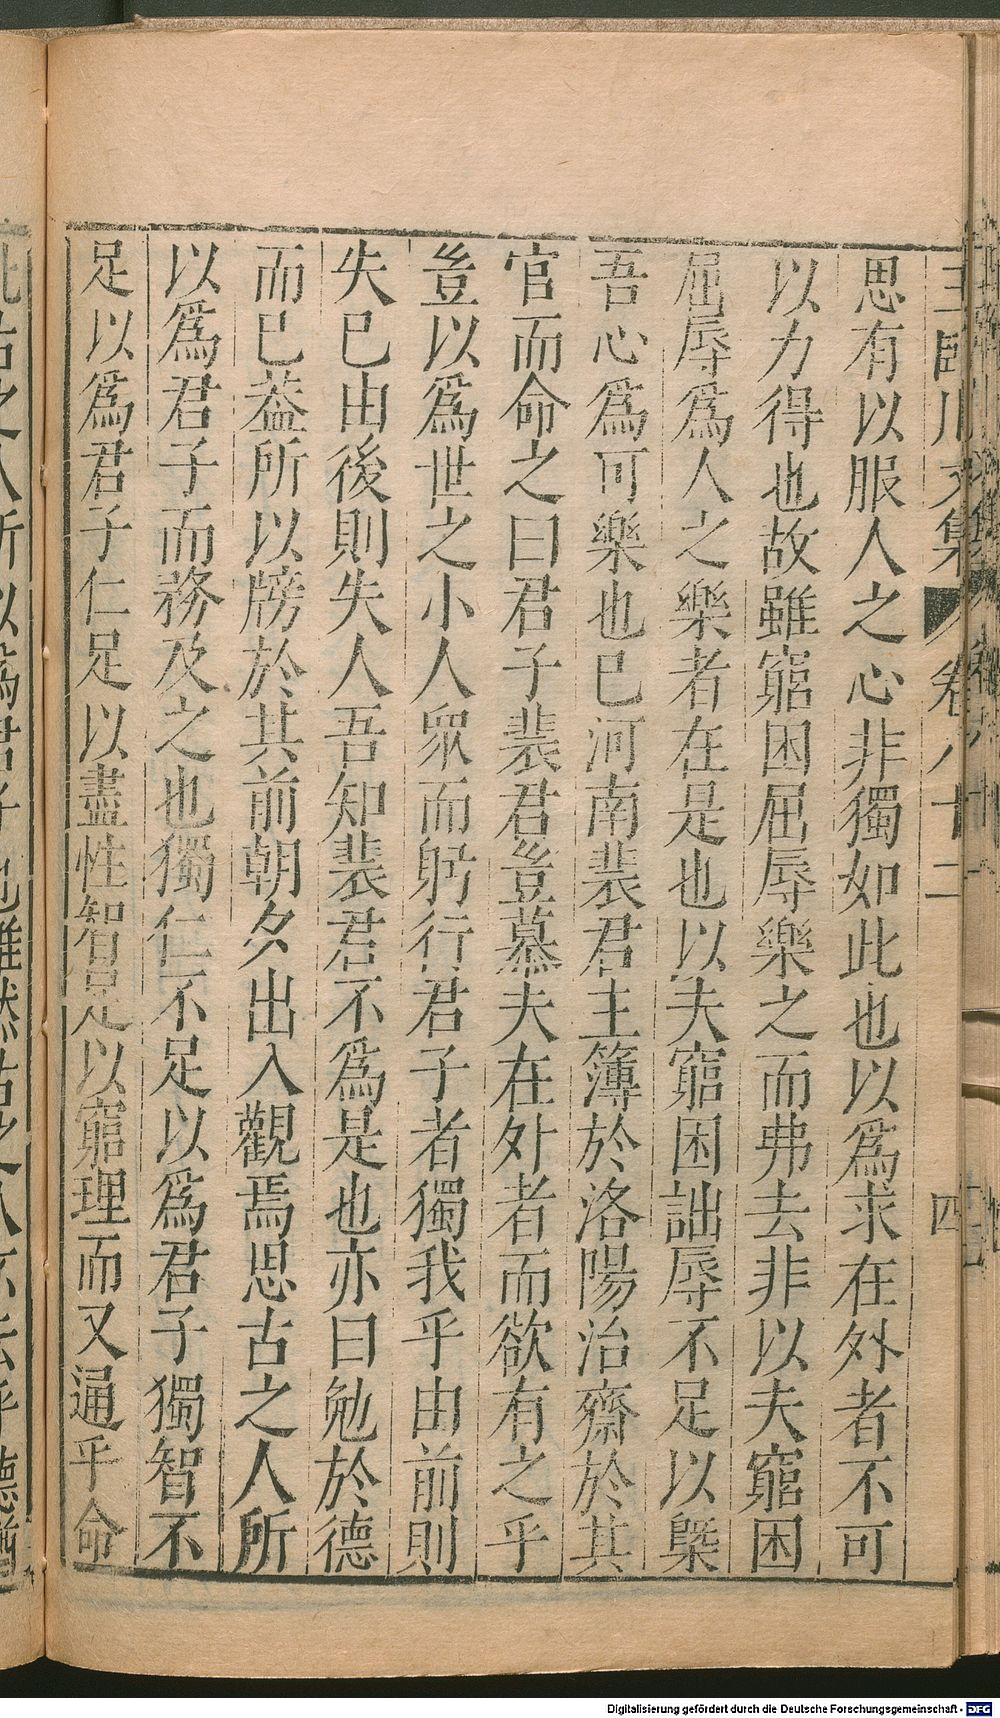 思有以服人之心非獨如此也以爲求在外者不可
以力得也故雖窮困屈辱樂之而弗去非以夫窮困
屈辱爲人之樂者在是也以夫窮困詘辱不足以槩
吾心爲可樂也已河南裴君主簿於洛陽治齋於其
官而命之曰君子裴君豈慕夫在外者而欲有之乎
豈以爲世之小人衆而躬行君子者獨我乎由前則
失已由後則失人吾知裴君不爲是也亦曰勉於德
而已葢所以牓於其前朝夕出入觀焉思古之人所
以爲君子而務及之也獨仁不足以爲君子獨智不
足以爲君子仁足以盡性智足以窮理而又通乎命
Digitalisierung gefördert durch die Deutsche Forschungsgemeinschaft - DFG